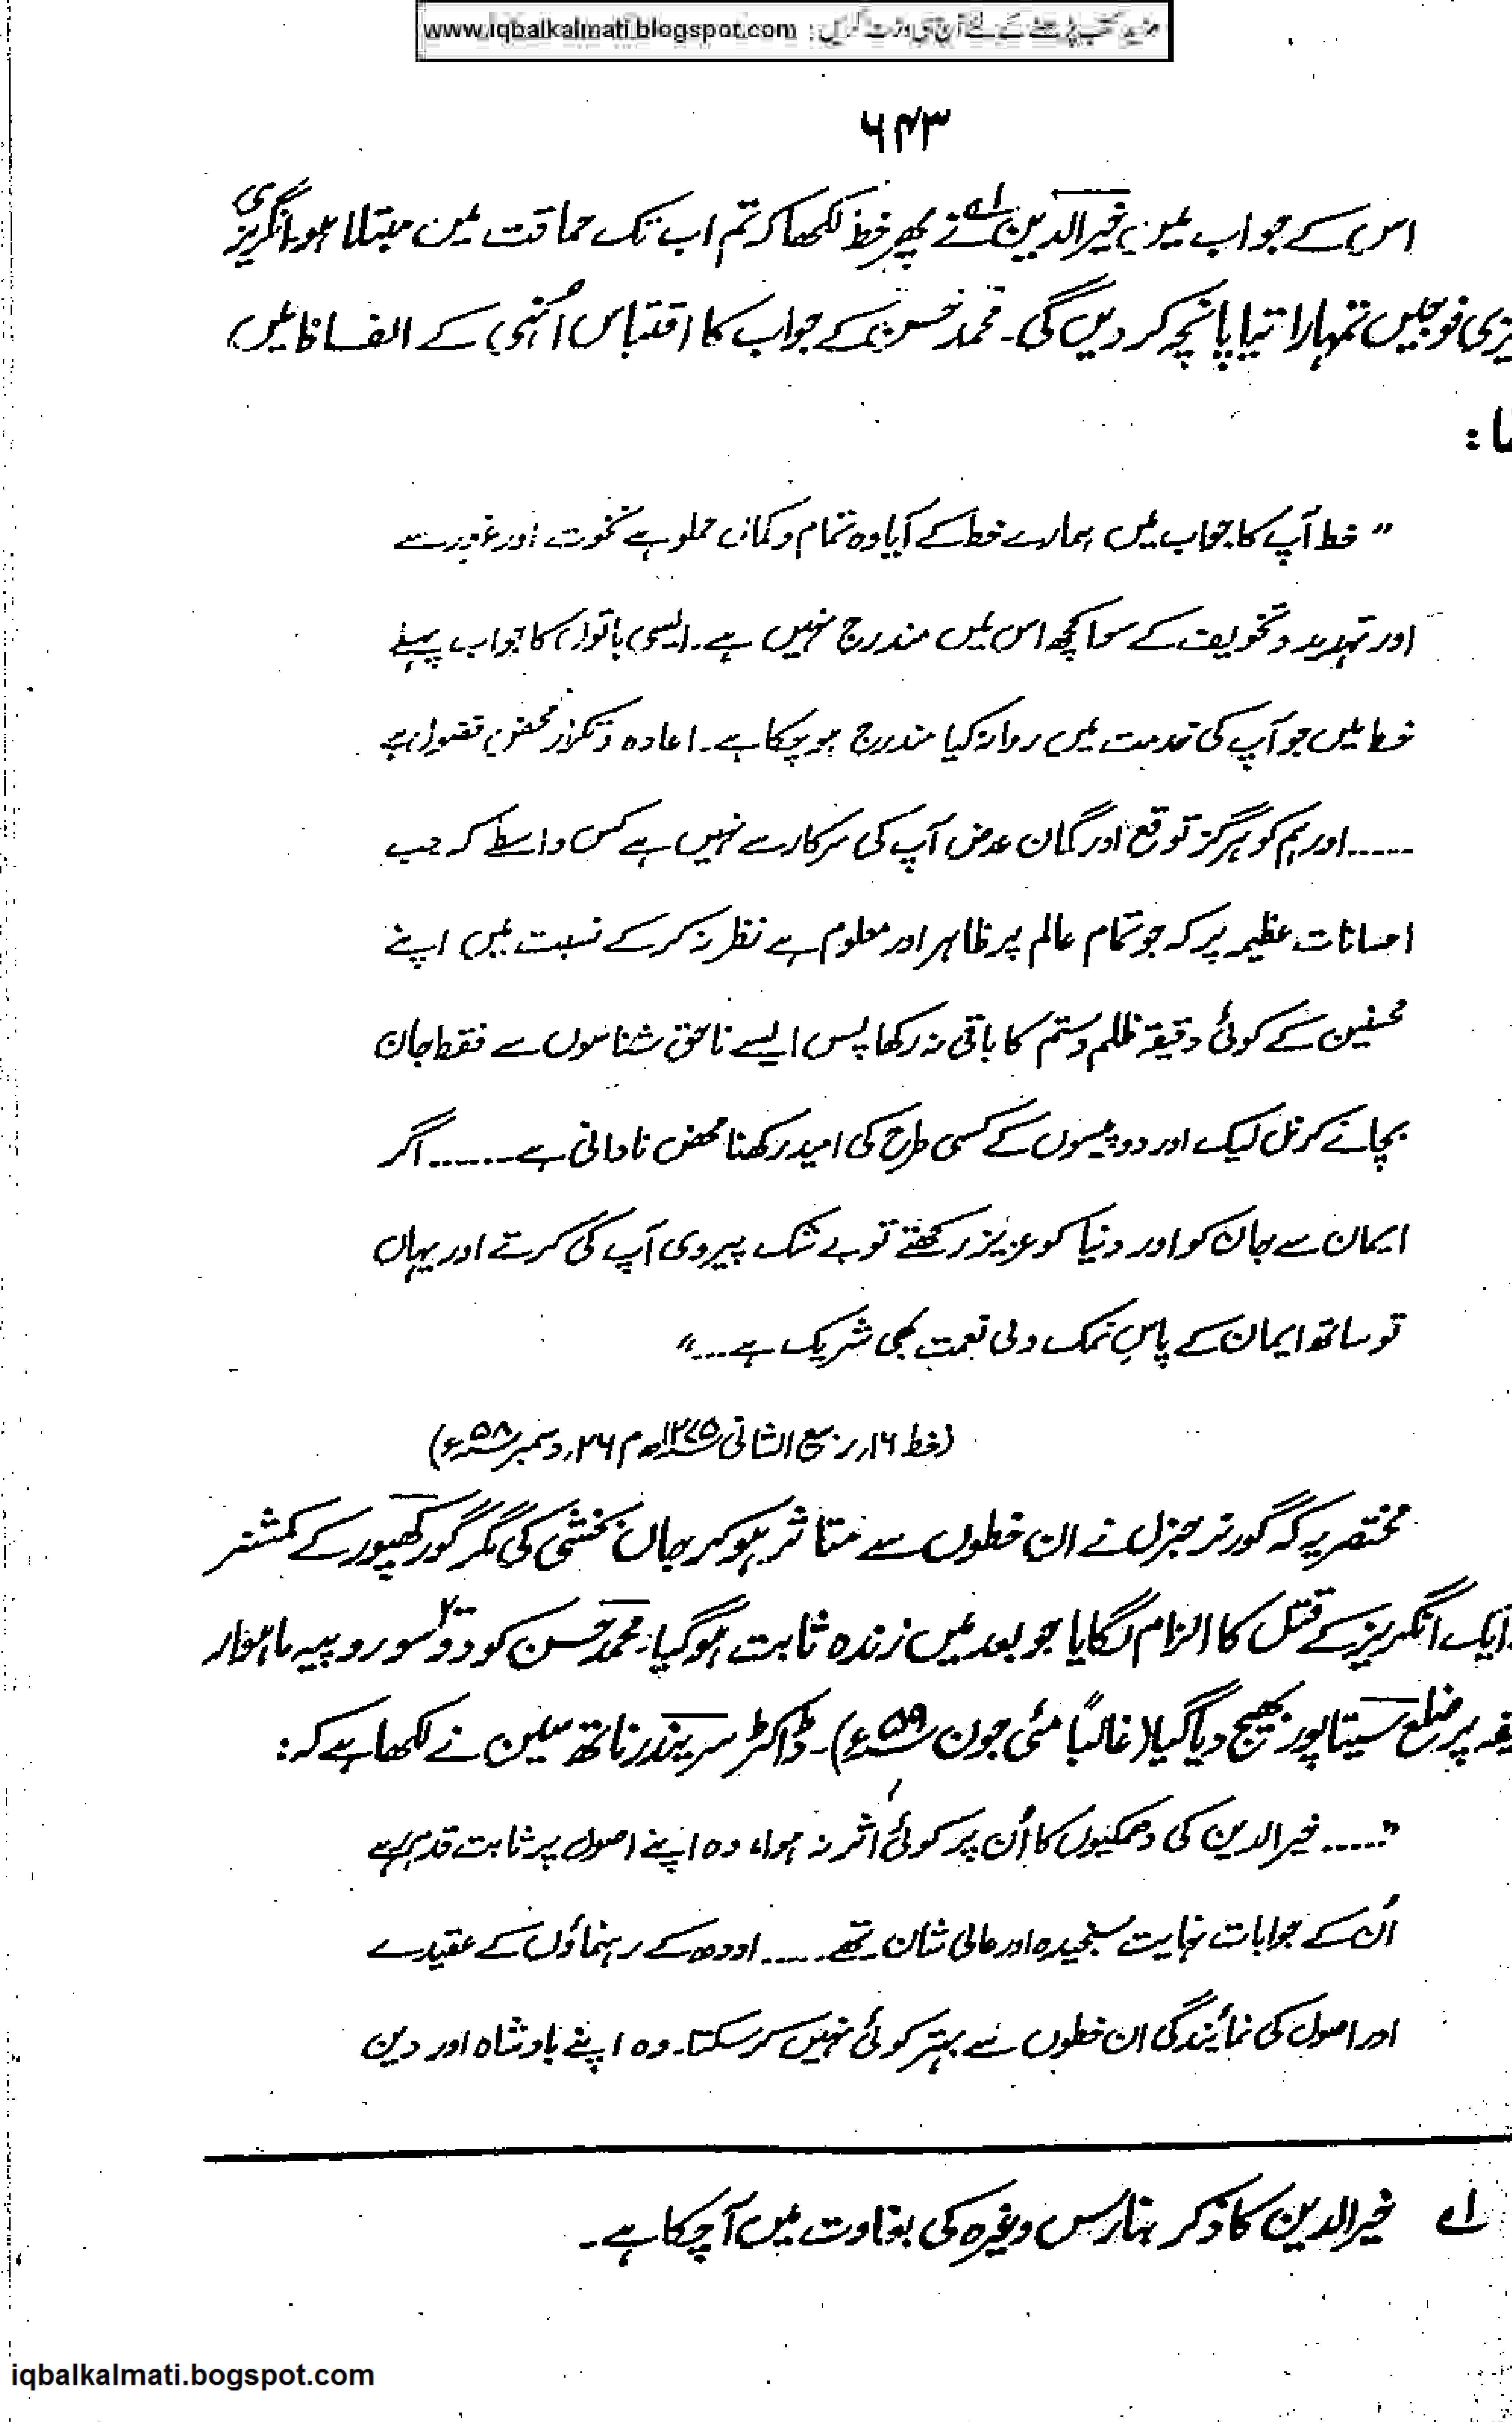 مزید کتب پڑھنے کے لئے آج ہی وزٹ کریں : www.iqbalkalmati.blogspot.com
۶۴۳
اس کے جواب میں خیرالدین لے نے پھر خط لکھا کہ تم اب تک حماقت میں مبتلا ہو، انگریزی
فوجیں تمہارا تیا پانچہ کر دیں گی۔ محمد حسن کے جواب کا اقتباس اُنہی کے الفاظ میں
:
" خط آپ کا جواب میں ہمارے خط کے آیا وہ تمام و کمال مملو ہے نخوت اور غرور سے
اور تہدید و تخویف کے سوا کچھ اس میں مندرج نہیں ہے۔ ایسی باتوں کا جواب پہلے
خط میں جو آپ کی خدمت میں روانہ کیا مندرج ہو چکا ہے۔ اعادہ و تکرار محض فضول ہے
......اور ہم کو ہرگز توقع اور گمان عوض آپ کی سرکار سے نہیں ہے کس واسطے کہ جب
احسانات عظیم پر کہ جو تمام عالم پر ظاہر اور معلوم ہے نظر نہ کر کے نسبت میں اپنے
محسنین کے کوئی دقیقہ ظلم و ستم کا باقی نہ رکھا پس ایسے ناحق شناسوں سے فقط جان
بچانے کرنل لیک اور دو میموں کے کسی طرح کی امید رکھنا محض نادانی ہے ....... اگر
ایمان سے جان کو اور دنیا کو عزیز رکھتے تو بے شک پیروی آپ کی کرتے اور یہاں
تو ساتھ ایمان کے پاسِ نمک ولی نعمت بھی شریک ہے...."
(خط ۱۶ ربیع الثانی ۱۲۷۵ھ م ۲۶ دسمبر ۵۸ء)
مختصر یہ کہ گورنر جنرل نے ان خطوں سے متاثر ہو کر جاں بخشی کی مگر گورکھپور کے کمشنر
ایک انگریز کے قتل کا الزام لگایا جو بعد میں زندہ ثابت ہو گیا۔ محمد حسن کو دو سو ۲۰۰ روپیہ ماہوار
پر ضلع سیتاپور بھیج دیا گیا (غالباً مئی جون ۵۹ء)۔ ڈاکٹر سریندر ناتھ سین نے لکھا ہے کہ:
"..... خیرالدین کی دھمکیوں کا اُن پر کوئی اثر نہ ہوا، وہ اپنے اصول پر ثابت قدم رہے
اُن کے جوابات نہایت سنجیدہ اور عالی شان تھے ..... اودھ کے رہنماؤں کے عقیدے
اور اصول کی نمائندگی ان خطوں سے بہتر کوئی نہیں کر سکتا۔ وہ اپنے بادشاہ اور دین
لے خیرالدین کا ذکر بنارس وغیرہ کی بغاوت میں آ چکا ہے۔
iqbalkalmati.bogspot.com